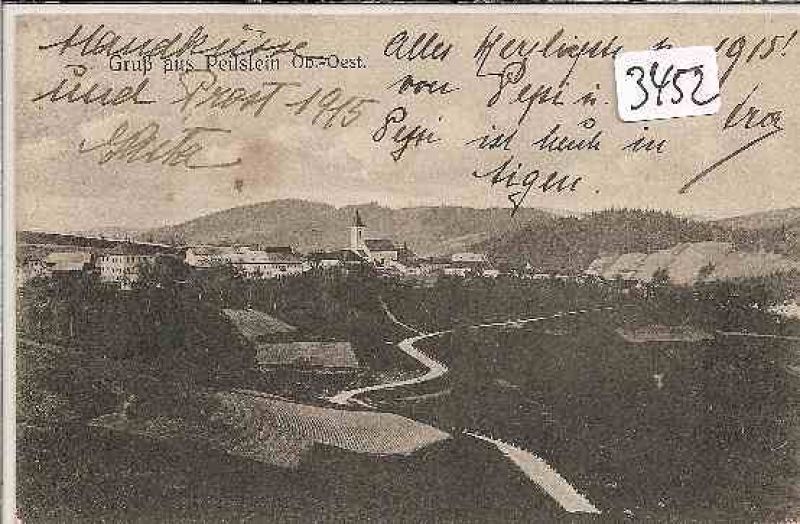 Handküsse
und Prost 1915
Gruß aus Peilstein Ob.-Oest.
Alles Herzlichste z. 1915!
von Pepi u.
Pepi ist heute in
Aigen.
3452